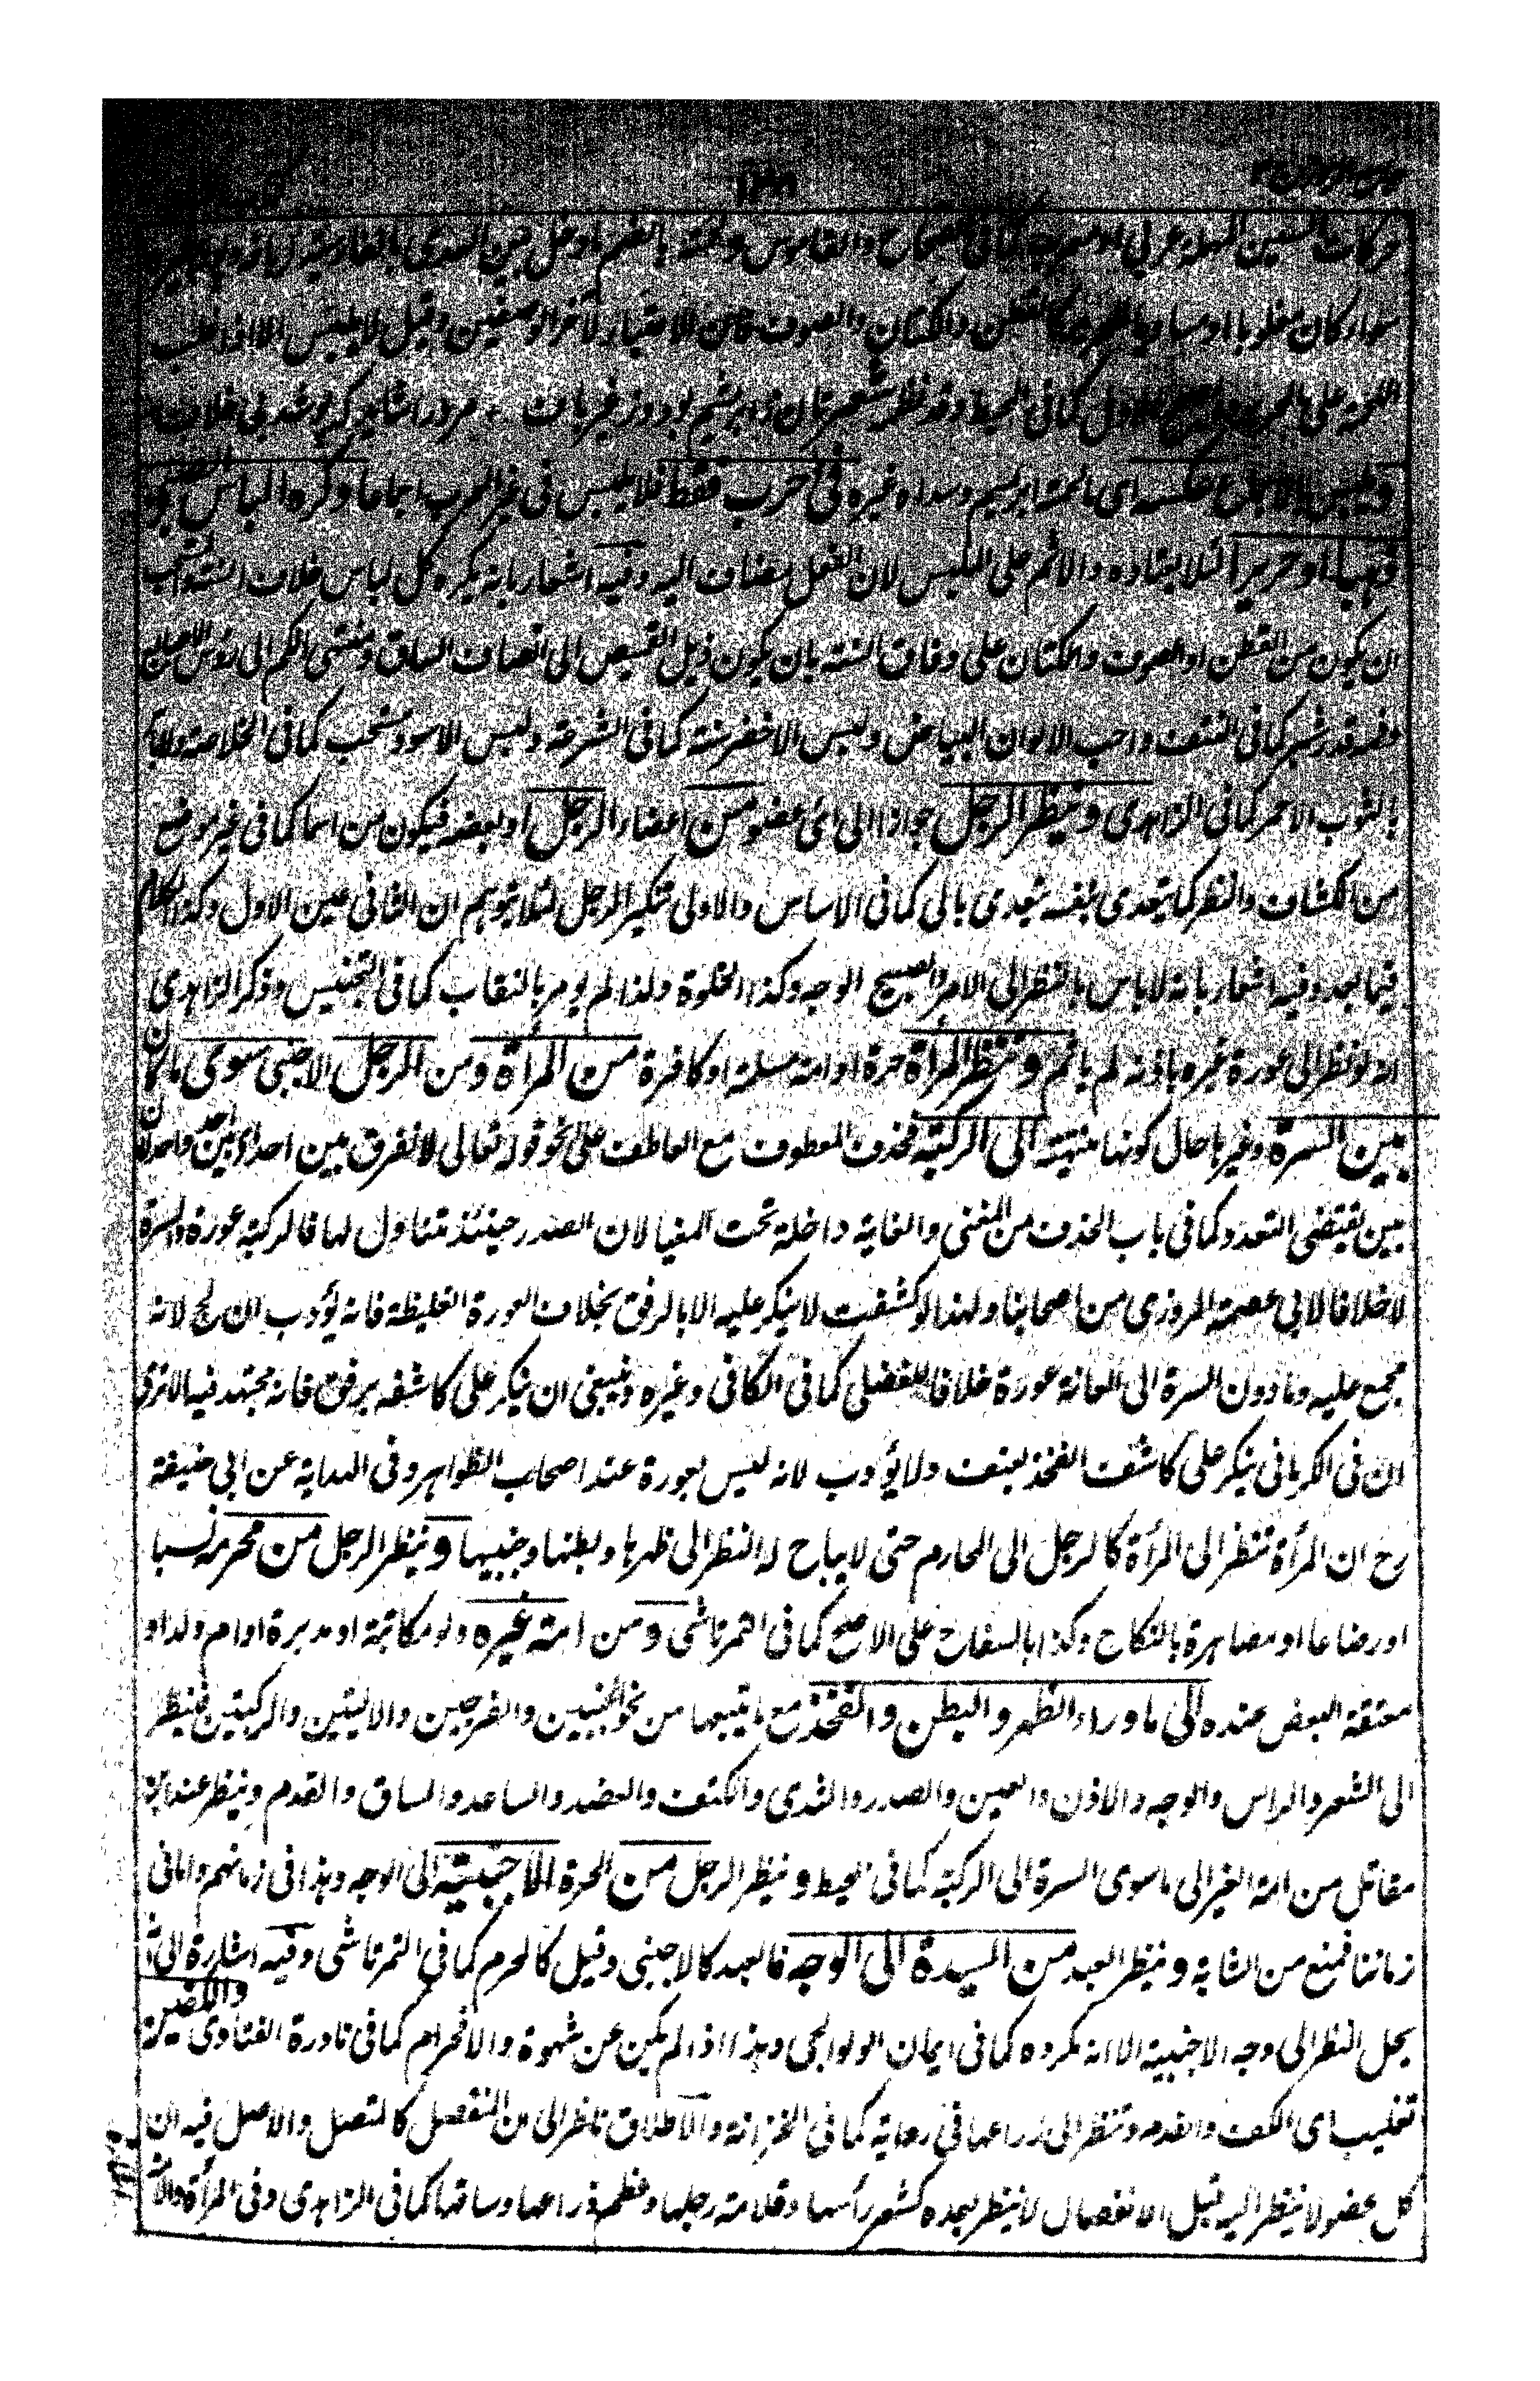 حركات السين المهملة عربي او معرب كما في الصحاح والقاموس ولحمته بالضم
سواء كان مغلوبا او مساويا للحرير كالقطن والكتان والصوف فان الاعتبار لآخر الوصفين وقيل لا يلبس الا اذا غلب
اللحمة على الحرير والصحيح الاول كما في المحيط وقد نظم شعر
ويلبس الرجل عكسه اى ما لحمته ابريسم وسداه غيره في حرب فقط فلا يلبس في غير الحرب اجماعا وكره الباس الصبي
ذهبا او حريرا لئلا يعتاده والاثم على الملبس لان الفعل مضاف اليه وفيه اشعار بانه يكره كل لباس خلاف السنة والمستحب
ان يكون من القطن او الصوف والكتان على وفاق السنة بان يكون ذيل القميص الى انصاف الساق ومنتهى الكم الى رؤس الاصابع
وفمه قدر شبر كما في النتف واحب الالوان البياض ولبس الاخضر سنة كما في الشرعة ولبس الاسود مستحب كما في الخلاصة ولا باس
بالثوب الاحمر كما في الزاهدى وينظر الرجل جوازا الى اى عضو من اعضاء الرجل او بعضه فيكون من اسما كما في غير موضع
من الكشاف والنظر كما يتعدى بنفسه يتعدى بالى كما في الاساس والاولى تنكير الرجل لئلا يتوهم ان الثاني عين الاول وكذا الكلام
فيما بعد وفيه اشعار بانه لا باس بالنظر الى الامرد الصبيح الوجه وكذا الخلوة ولذا لم يومر بالنقاب كما في التجنيس وذكر الزاهدى
انه لو نظر الى عورة غيره باذنه لم ياثم وتنظر المرأة حرة او امة مسلمة او كافرة من المرأة ومن الرجل الاجنبى سوى ما كان
بين السرة وغيرها حال كونها منتهية الى الركبة فحذف المعطوف مع العاطف على نحو قوله تعالى لا نفرق بين احد اى بين احد واحد لان
بين يقتضى التعدد كما في باب الحذف من المغنى والغاية داخلة تحت المغيا لان الصدر حينئذ متناول لها فالركبة عورة والسرة
لا خلافا لابى عصمة المروزى من اصحابنا ولهذا لو كشفت لا ينكر عليه الا بالرفق بخلاف العورة الغليظة فانه يؤدب ان لج لانه
مجمع عليه وما دون السرة الى العانة عورة خلافا للفضلى كما في الكافى وغيره وينبغى ان ينكر على كاشفه برفق فانه مجتهد فيه الا ترى
ان في الكرمانى ينكر على كاشف الفخذ بعنف ولا يؤدب لانه ليس بعورة عند اصحاب الظواهر وفى الهداية عن ابى حنيفة
رح ان المرأة تنظر الى المرأة كالرجل الى المحارم حتى لا يباح له النظر الى ظهرها وبطنها وجنبيها وينظر الرجل من محرمه نسبا
او رضاعا او مصاهرة بالنكاح وكذا بالسفاح على الاصح كما في التمرتاشى ومن امة غيره ولو مكاتبة او مدبرة او ام ولد او
معتقة البعض عنده الى ما وراء الظهر والبطن والفخذ مع ما يتبعها من نحو الجنبين والفرجين والاليتين والركبتين فينظر
الى الشعر والراس والوجه والاذن والعين والصدر والثدى والكتف والعضد والساعد والساق والقدم وينظر عند ابن
مقاتل من امة الغير الى ما سوى السرة الى الركبة كما في المحيط وينظر الرجل من الحرة الاجنبية الى الوجه وهذا في زمانهم واما في
زماننا فمنع من الشابة وينظر العبد من السيدة الى الوجه فالعبد كالاجنبى وقيل كالمحرم كما في التمرتاشى وفيه اشارة الى انه
يحل النظر الى وجه الاجنبية الا انه مكروه كما في ايمان الولوالجى وهذا اذا لم يكن عن شهوة والا فحرام كما في نادرة الفتاوى والكفين
تغليب اى الكف والقدم وتنظر الى ذراعها في رواية كما في الخزانة والاطلاق ناظر الى ان المنفصل كالمتصل والاصل فيه ان
كل عضو لا ينظر اليه قبل الانفصال لا ينظر بعده كشعر رأسها وقلامة رجلها وعظم ذراعها وساقها كما في الزاهدى وفى المرأة